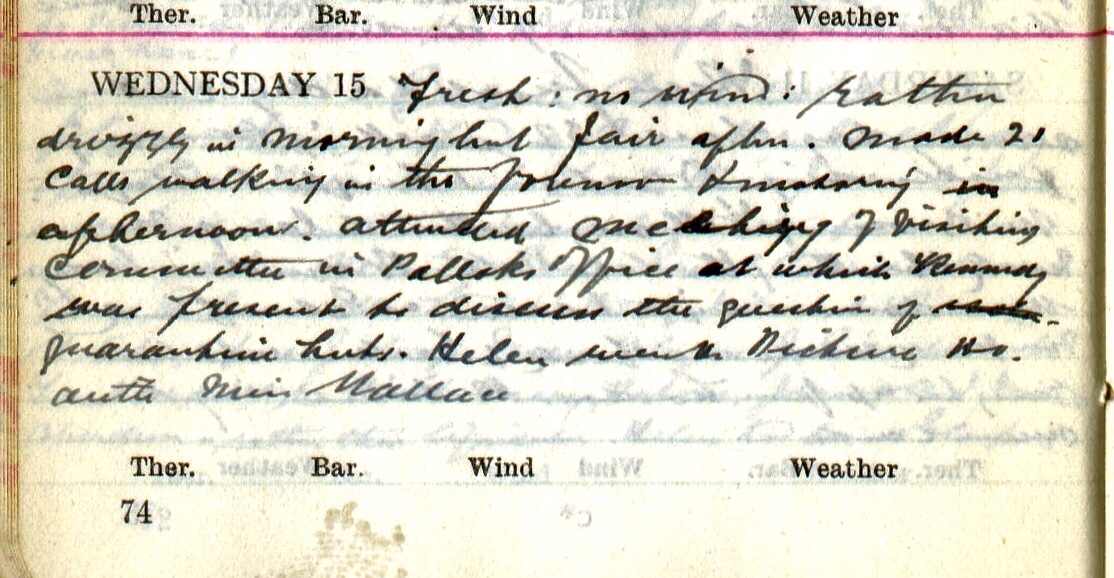 Ther. Bar. Wind Weather
WEDNESDAY 15 Fresh : no wind : rather
drizzly in morning but fair after. Made 21
calls walking in the forenoon & motoring in
afternoon. attended meeting of Visiting
Committee in Polloks Office at which Kennedy
was present to discuss the question of
quarantine huts. Helen went to Picture Ho.
with Miss Wallace
Ther. Bar. Wind Weather
74